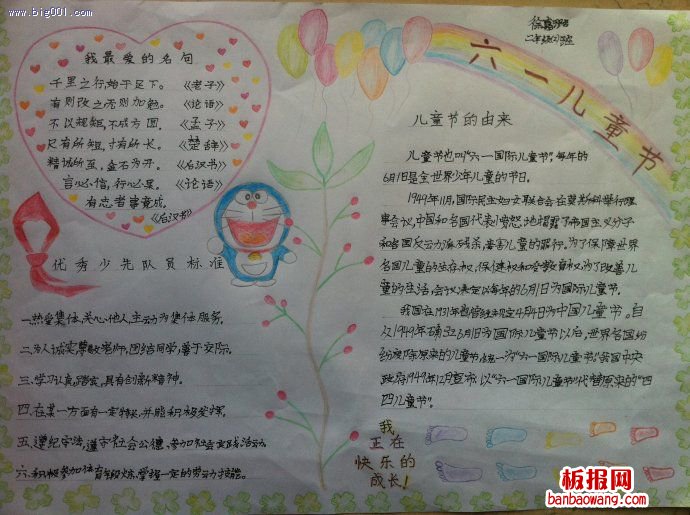 www.big001.com
二年级(2)班
六一儿童节
我最爱的名句
千里之行,始于足下。《老子》
有则改之,无则加勉。《论语》
不以规矩,不成方圆。《孟子》
尺有所短,寸有所长。《楚辞》
精诚所至,金石为开。《后汉书》
言必信,行必果。《论语》
有志者事竟成。
《后汉书》
优秀少先队员标准
一、热爱集体,关心他人,主动为集体服务。
二、为人诚实,尊敬老师,团结同学,善于交际。
三、学习认真,踏实,具有创新精神。
四、在某一方面有一定特长,并能积极发挥。
五、遵纪守法,遵守社会公德,参加社会实践活动。
六、积极参加体育锻炼,掌握一定的劳动技能。
儿童节的由来
儿童节也叫“六一国际儿童节”,每年的
6月1日是全世界少年儿童的节日。
1949年11月,国际民主妇女联合会在莫斯科举行理
事会议,中国和各国代表愤怒地揭露了帝国主义分子
和各国反动派残杀、毒害儿童的罪行。为了保障世界
各国儿童的生存权、保健权和受教育权,为了改善儿
童的生活,会议决定以每年的6月1日为国际儿童节。
我国在1931年曾规定4月4日为中国儿童节。自
从1949年确立6月1日为国际儿童节以后,世界各国纷
纷废除原来的儿童节,统一为“六一国际儿童节”。我国中央
政府1949年12月宣布:以“六一国际儿童节”代替原来的“四
四儿童节”。
我
正在
快乐的
成长!
板报网
banbaowang.com